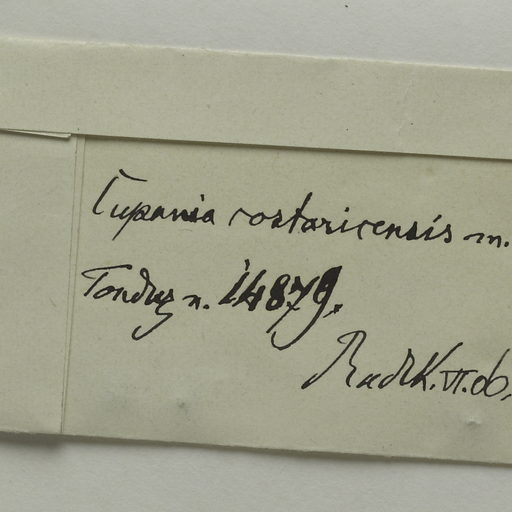 Cupania costaricensis m.
Tonduz n. 14879.
Radlk. VI. 06.